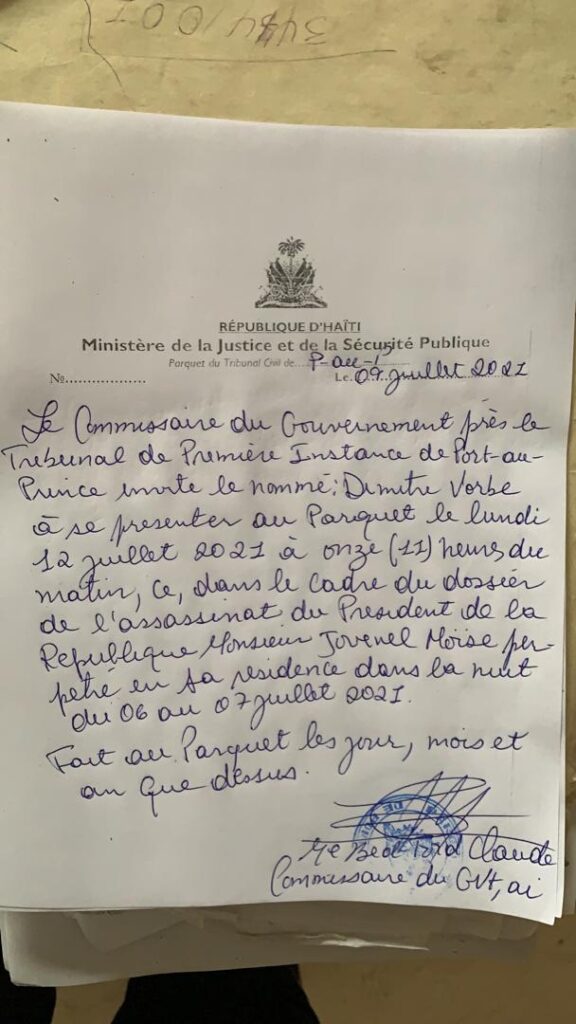 RÉPUBLIQUE D'HAÏTI
Ministère de la Justice et de la Sécurité Publique
Parquet du Tribunal Civil de....P-au-P
No.................. Le 09 juillet 2021
Le Commissaire du Gouvernement près le
Tribunal de Première Instance de Port-au-
Prince invite le nommé: Dimitri Vorbe
à se presenter au Parquet le lundi
12 juillet 2021 à onze (11) heures du
matin, ce, dans le cadre du dossier
de l'assassinat du President de la
Republique Monsieur Jovenel Moïse per-
pétré en sa residence dans la nuit
du 06 au 07 juillet 2021.
Fait au Parquet les jour, mois et
an que dessus.
Me Bed-Ford Claude
Commissaire du Gvt, ai